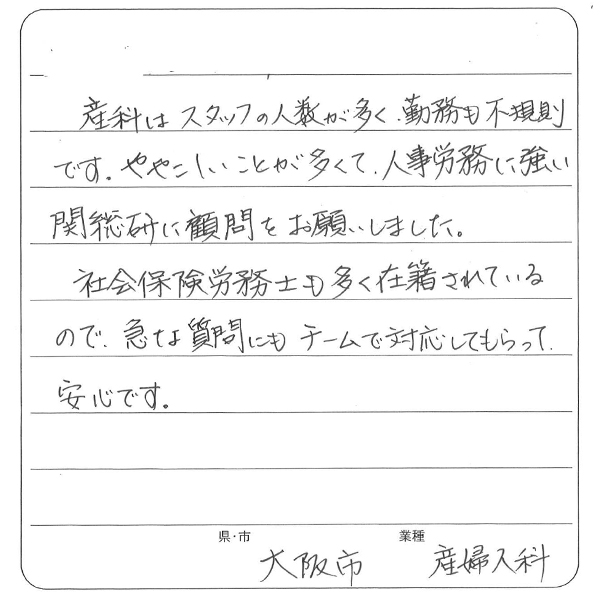 産科はスタッフの人数が多く、勤務も不規則
です。ややこしいことが多くて、人事労務に強い
関総研に顧問をお願いしました。
社会保険労務士も多く在籍されている
ので、急な質問にもチームで対応してもらって、
安心です。
県・市 大阪市 業種 産婦人科